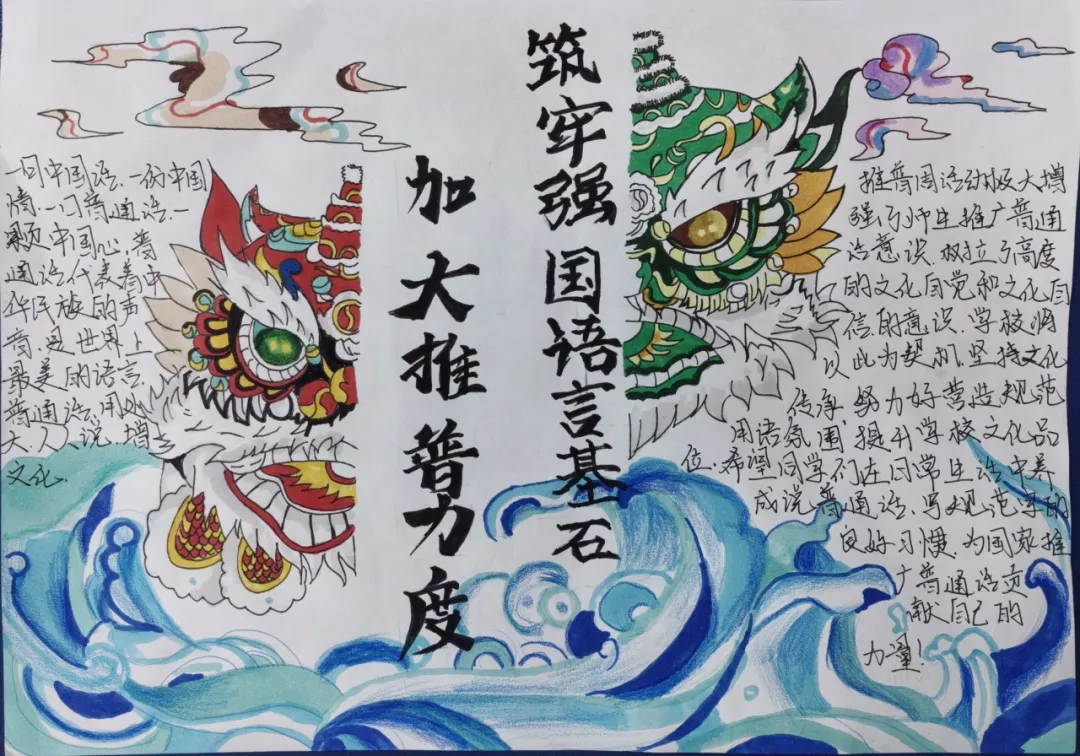 筑牢强国语言基石
加大推普力度
一口中国话.一份中国
情.一门普通话.一
颗中国心.普
通话代表着中
华民族的声
音.是世界上
最美的语言.
普通话.用
大.人人说.增
文化.
推普周活动极大增
强了师生推广普通
话意识.树立了高度
的文化自觉和文化自
信的意识.学校将
以此为契机.坚持文化
传承.努力好营造规范
用语氛围.提升学校文化品
位.希望同学们在日常生活中养
成说普通话.写规范字的
良好习惯.为国家推
广普通话贡
献自己的
力量!